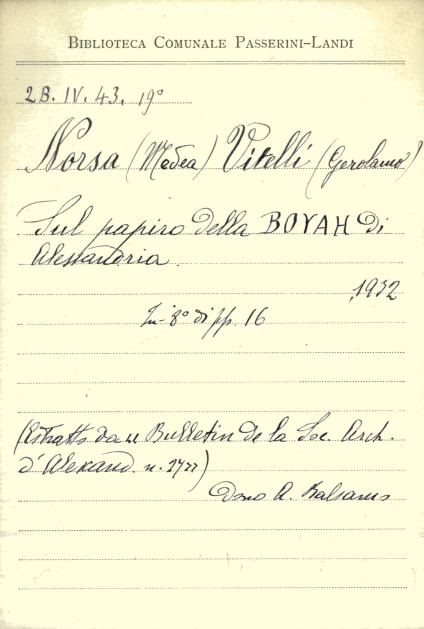 BIBLIOTECA COMUNALE PASSERINI-LANDI
2B. IV. 43. 19°
Norsa (Medea) Vitelli (Gerolamo)
Sul papiro della ΒΟΥΛΗ di
Alessandria.
1932
In-8° di pp. 16
(Estratto da Bulletin de la Soc. Arch.
d'Alexand. n. 27)
Dono A. Balsamo